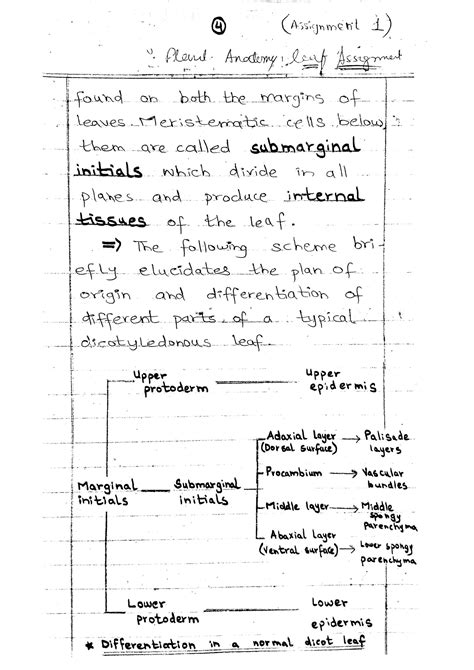 4
(Assignment 1)
Plant Anatomy: leaf Assignment
found on both the margins of
leaves. Meristematic cells below
them are called submarginal
initials which divide in all
planes and produce internal
tissues of the leaf.
⇒ The following scheme bri-
efly elucidates the plan of
origin and differentiation of
different parts of a typical
dicotyledonous leaf.
Upper protoderm — Upper epidermis
Adaxial layer (Dorsal surface) → Palisade layers
Procambium → Vascular bundles
Marginal initials — Submarginal initials
Middle layer → Middle spongy parenchyma
Abaxial layer (Ventral surface) → Lower spongy parenchyma
Lower protoderm — Lower epidermis
* Differentiation in a normal dicot leaf